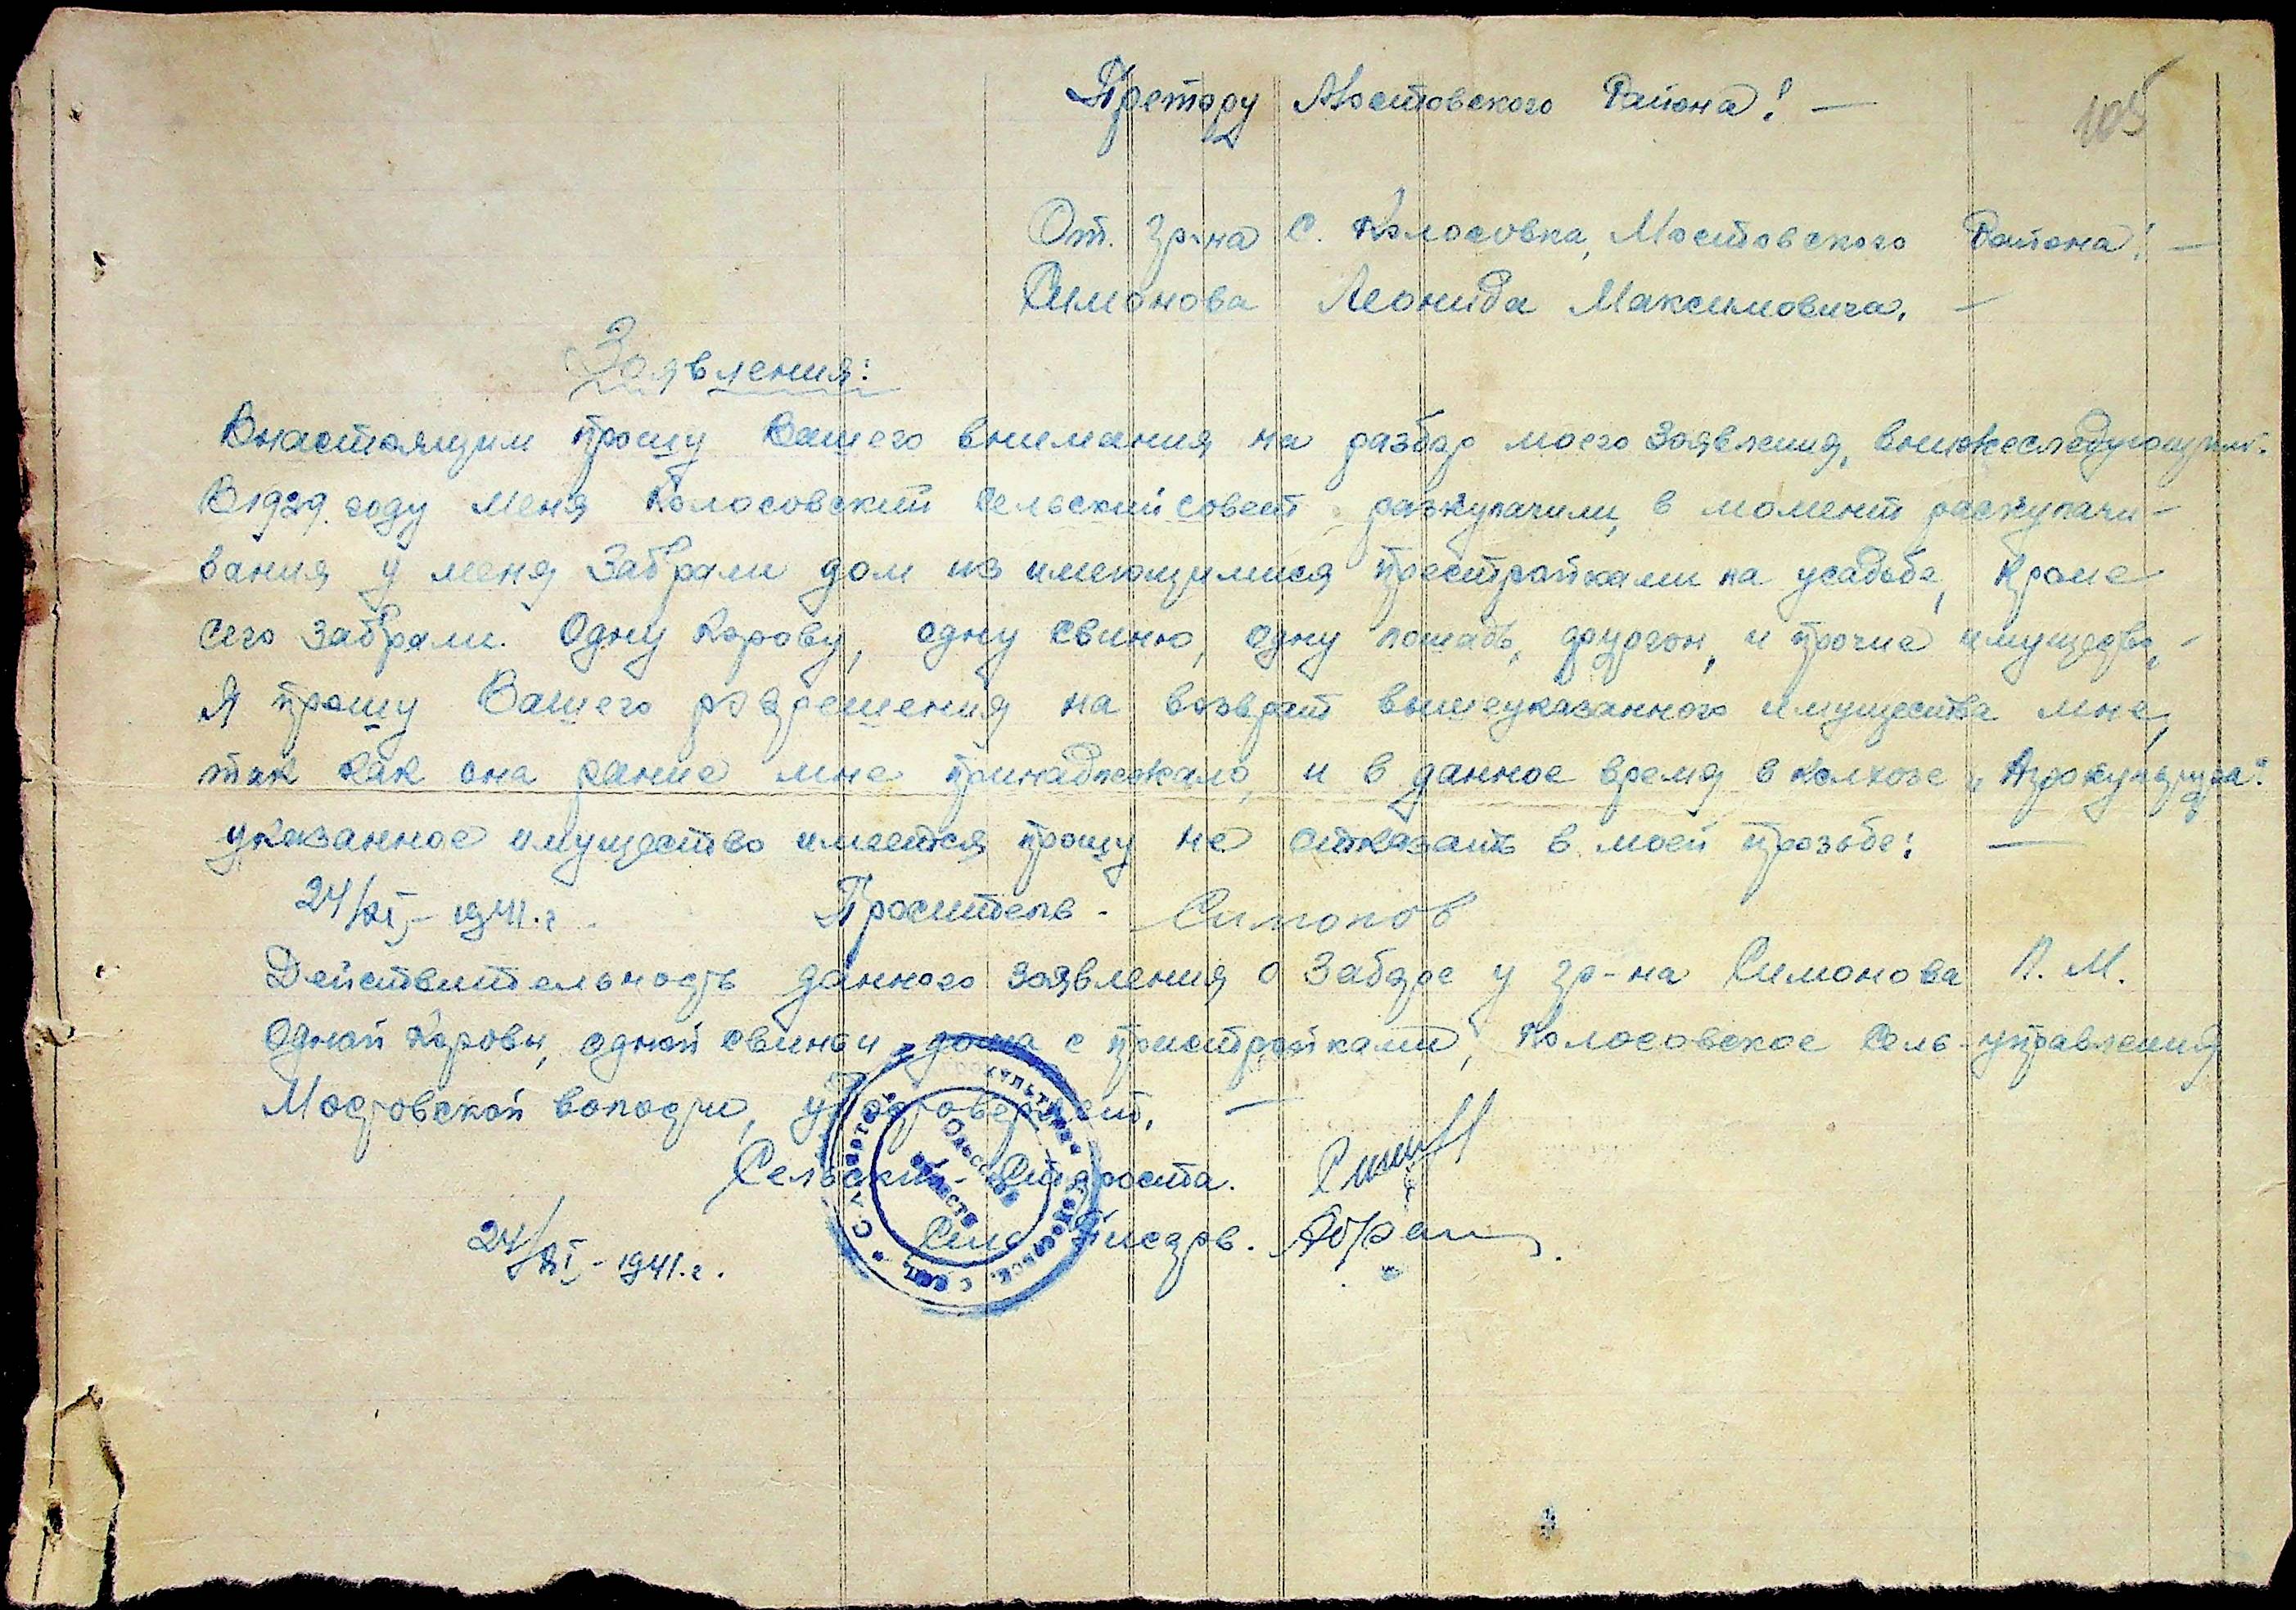 Претору Мостовского Района! —
105
От. гр-на С. Колосовка, Мостовского Района! —
Симонова Леонида Максимовича. —
Заявления:
Внастоящим прошу Вашего внимания на разбор моего Заявления, внижеследующим:
В 1929. году меня Колосовский сельский совет разкулачили, в момент раскулачи-
вания у меня Забрали дом из имеющимися престройками на усадьбе, Кроме
сего забрали. Одну Корову, одну свиню, одну лошадь, фургон, и прочие имущество, —
Я прошу Вашего разрешения на возврат вышеуказанного имущества мне,
так как она рание мне принадлежало, и в данное время в Колхозе „Агрокультура".
указанное имущество имеется прошу не отказать в моей прозьбе: —
24/XI - 1941.г. Проситель - Симонов
Действительность данного заявления о Заборе у гр-на Симонова Л. М.
Одной Коровы, одной свиньи, дома с пристройками, Колосовское Сель-управления
Мостовской волости, удостоверяет. —
Сельский Староста.
24/XI - 1941.г. Сель Писарь.
Одесская область